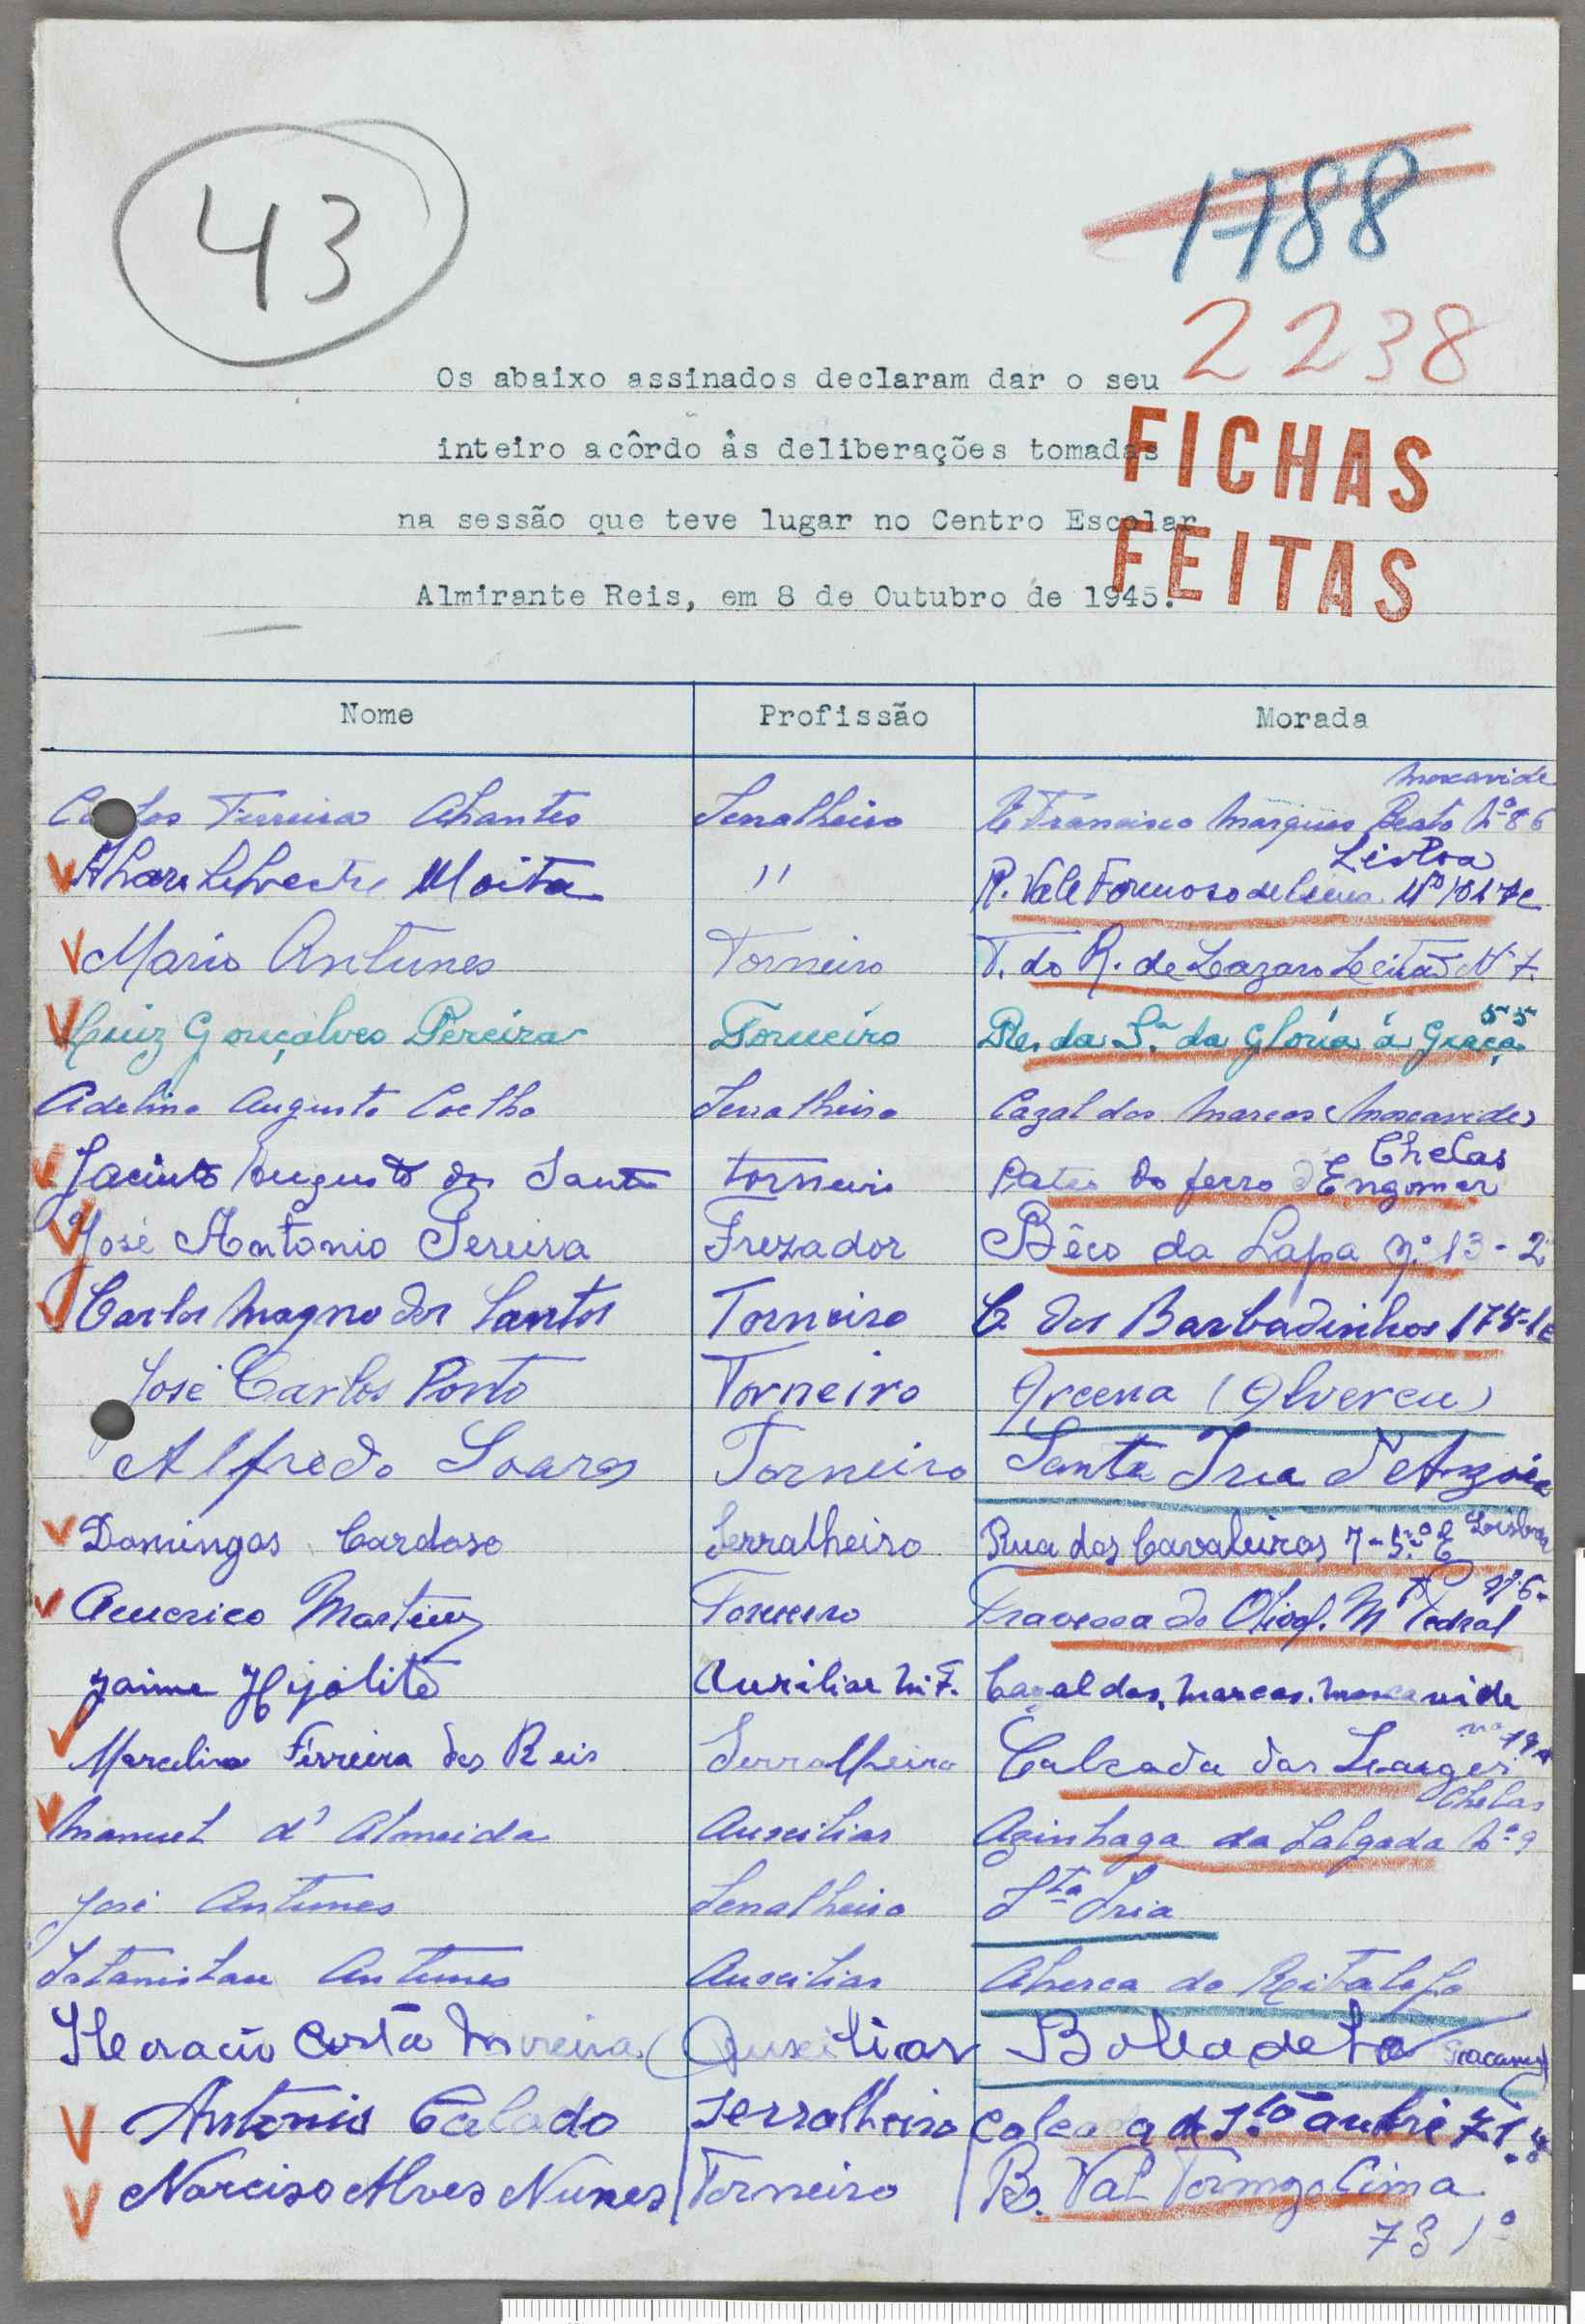 43
1788
2238
Os abaixo assinados declaram dar o seu
inteiro acôrdo às deliberações tomadas
na sessão que teve lugar no Centro Escolar
Almirante Reis, em 8 de Outubro de 1945.
FICHAS
FEITAS
Nome Profissão Morada
Moscavide
Carlos Ferreira Abrantes Serralheiro R Francisco Marques Beato Nº 86
Lisboa
Alvaro Silvestre Moita " R. Vale Formoso de Cima Nº
Mario Antunes Torneiro T. do R. de Lazaro Leitão Nº 7
55
Luiz Gonçalves Pereira Torneiro R. da Sª da Gloria á Graça
Adelino Augusto Coelho Serralheiro Cazal dos Marcos (Moscavide)
Chelas
Jacinto Augusto dos Santos torneiro Pateo do ferro d'Engomar
José Antonio Pereira Frezador Bêco da Lapa nº 13-2
Carlos Magno dos Santos Torneiro C. dos Barbadinhos
José Carlos Porto Torneiro (Alverca)
Alfredo Soares Torneiro Santa Iria d'Azoia
Lisboa
Domingos Cardoso Serralheiro Rua dos Cavaleiros 7-5.º E
Nº 6
Americo Martins Torneiro Travessa do
Jaime Hipólito Auxiliar M.F. Cazal dos Marcos. Moscavide
Marcelino Ferreira dos Reis Serralheiro Calsada das
Chelas
Manuel d'Almeida Auxiliar Azinhaga da Salgada Nº 9
José Antunes Serralheiro Stª Iria
Estanislau Antunes Auxiliar Alverca do Ribatejo
Horacio Costa Moreira Auxiliar Bobadela (Sacavem)
Antonio Calado serralheiro Calçada de Stº André 71
Narciso Alves Nunes Torneiro R. Val Cima
73 1º